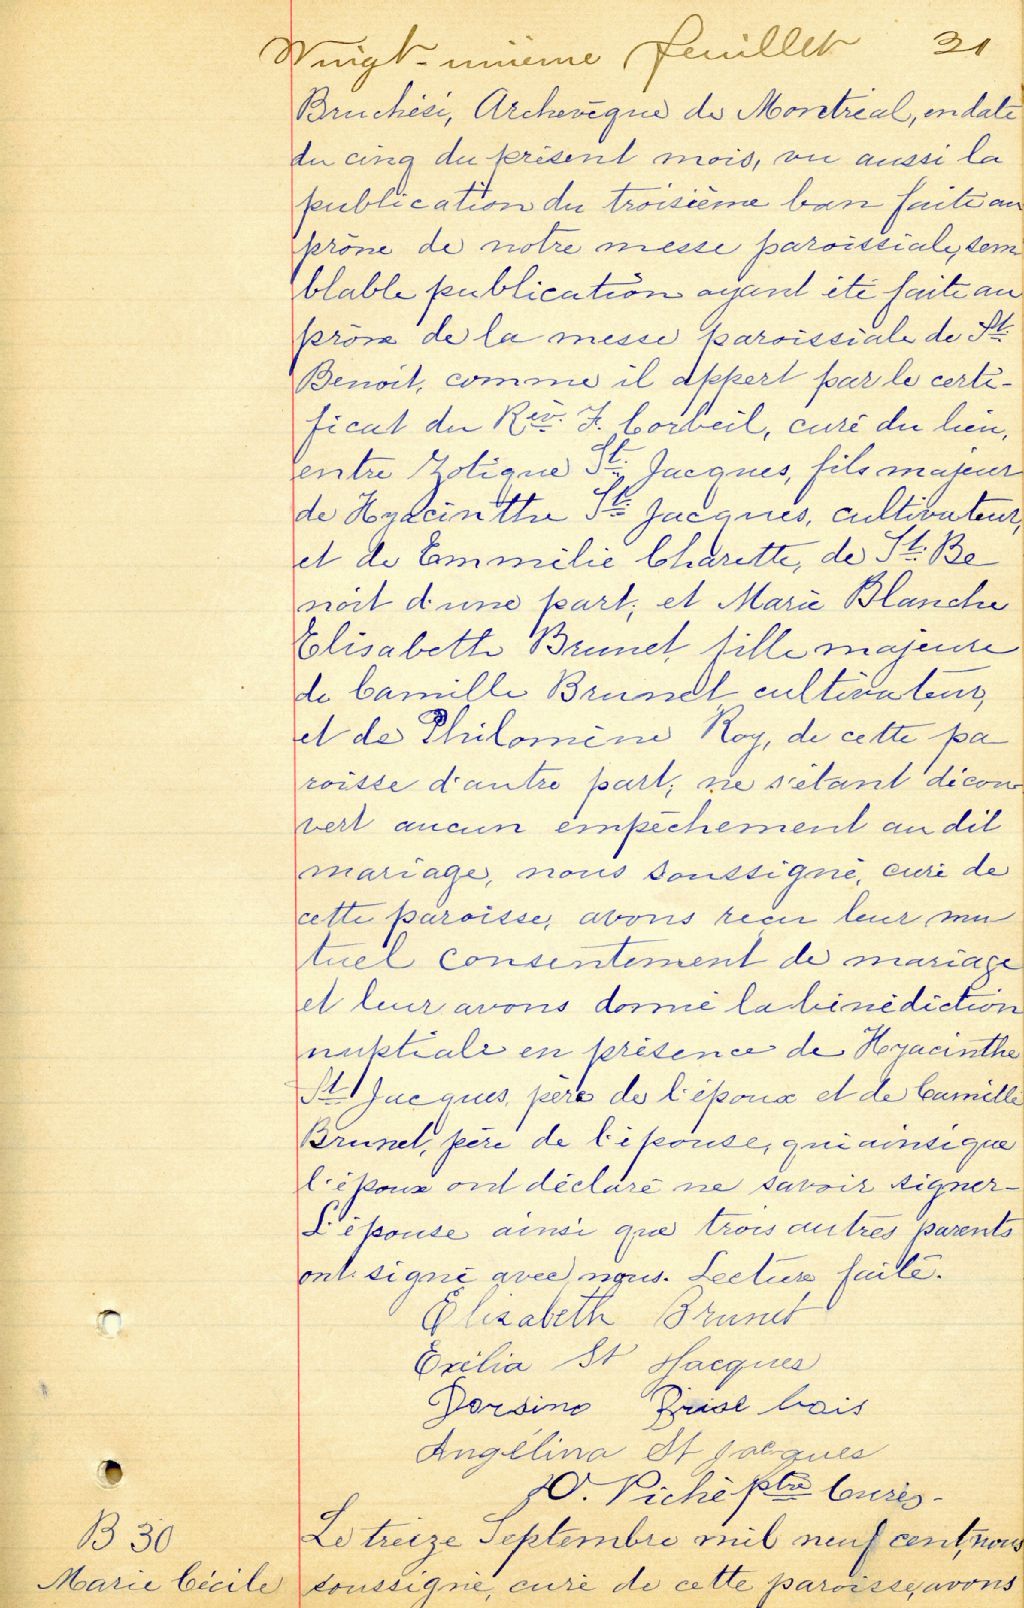 Vingt-unième feuillet 21
Bruchési, Archevêque de Montréal, en date
du cinq du présent mois, vu aussi la
publication du troisième ban faite au
prône de notre messe paroissiale, sem
blable publication ayant été faite au
prône de la messe paroissiale de St.
Benoit, comme il appert par le certi-
ficat du Rév. F. Corbeil, curé du lieu,
entre Zotique St. Jacques, fils majeur
de Hyacinthe St. Jacques, cultivateur,
et de Emmélie Charette, de St. Be
noit d'une part; et Marie Blanche
Elisabeth Brunet, fille majeure
de Camille Brunet, cultivateur,
et de Philomène Roy, de cette pa
roisse d'autre part; ne s'étant décou
vert aucun empêchement au dit
mariage, nous soussigné, curé de
cette paroisse, avons reçu leur mu
tuel consentement de mariage
et leur avons donné la bénédiction
nuptiale en présence de Hyacinthe
St Jacques, père de l'époux et de Camille
Brunet, père de l'épouse, qui ainsi que
l'époux ont déclaré ne savoir signer-
L'épouse ainsi que trois autres parents
ont signé avec nous. Lecture faite.
Elizabeth Brunet
Exilia St Jacques
Dorsino Brise bois
Angélina St Jacques
O. Piché ptre Curé-
B 30
Le treize Septembre mil neuf cent, nous
Marie Cécile
soussigné, curé de cette paroisse, avons